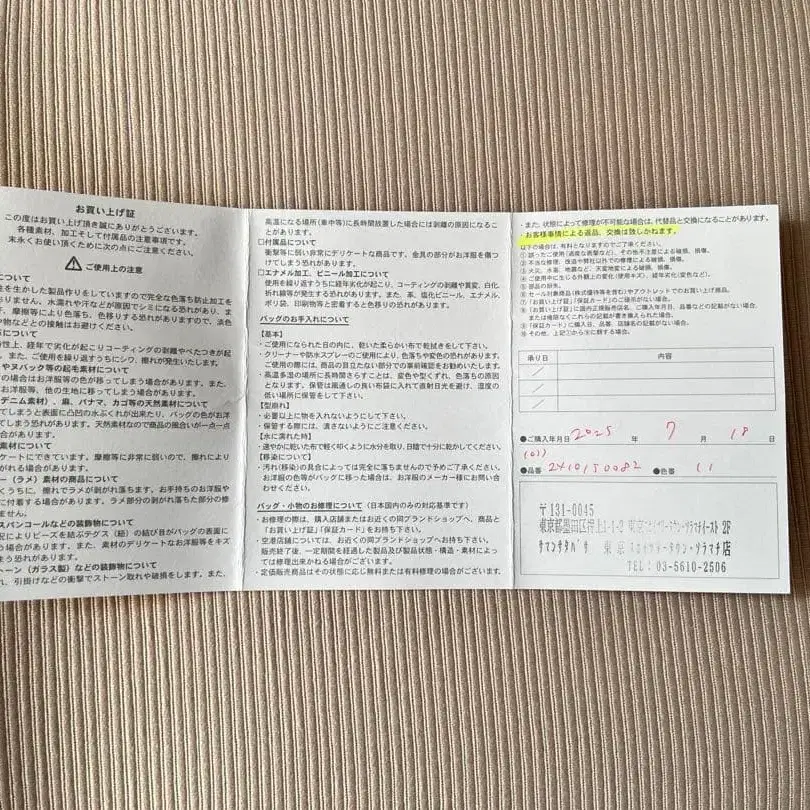 お買い上げ証
この度はお買い上げ頂き誠にありがとうございます。
各種素材、加工そして付属品の注意事項です。
末永くお使い頂くために次の点にご注意ください。
ご使用上の注意
について
を生かした製品作りをしていますので完全な色落ち防止加工を
おりません。水濡れや汗などが原因でシミになる恐れがあり、ま
、摩擦等により色落ち、色移りする恐れがありますので、淡色
物などとの接触はお避けください。
について
性上、経年で劣化が起こりコーティングの剥離やべたつきが起
。また、ご使用を繰り返すうちにシワ、擦れが発生いたします。
やヌバック等の起毛素材について
の場合はお洋服等の色が移ってしまう場合があります。また、
お洋服等、他の生地に移ってしまう場合があります。
デニム素材）、麻、パナマ、カゴ等の天然素材について
てしまうと表面に凸凹の水ぶくれが出来たり、バッグの色がお洋
てしまう恐れがあります。天然素材なので商品の風合いが一点一
場合があります。
素材について
ケートにできています。摩擦等に非常に弱いので、擦れにより
がれる場合がございます。
ー（ラメ）素材の商品について
くうちに、擦れでラメが剥がれ落ちます。お手持ちのお洋服や
に付着する場合があります。ラメ部分の剥がれ落ちた部分の修
せん。
スパンコールなどの装飾物について
況によりビーズを結ぶテグス（紐）の結び目がバッグの表面に
う場合があります。また、素材のデリケートなお洋服等をキズ
まう恐れがあります。
ーン（ガラス製）などの装飾物について
れ、引掛けなどの衝撃でストーン取れや破損をします。また、
高温になる場所（車中等）に長時間放置した場合には剥離の原因になるこ
とがあります。
□付属品について
衝撃等に弱い非常にデリケートな商品です、金具の部分がお洋服を傷つ
けてしまう恐れがあります。
□エナメル加工、ビニール加工について
使用を繰り返すうちに経年劣化が起こり、コーティングの剥離や黄変、白化、
折れ線等が発生する恐れがあります。また、革、塩化ビニール、エナメル、
ポリ袋、印刷物等と密着すると色移りの恐れがあります。
バッグのお手入れについて
【基本】
・ご使用になられた日の内に、乾いた柔らかい布で乾拭きをして下さい。
・クリーナーや防水スプレーのご使用により、色落ちや変色の恐れがあります。
ご使用の際には、商品の目立たない部分での事前確認をお勧めいたします。
・高温多湿の場所に長時間さらすことは、変色や型くずれ、色落ちの原因
となります。保管は風通しの良い布袋に入れて直射日光を避け、湿度の
低い場所に保管をして下さい。
【型崩れ】
・必要以上に物を入れないようにして下さい。
・保管する際には、潰さないようにご注意ください。
【水に濡れた時】
・速やかに乾いた布で軽く叩くように水分を取り、日陰で十分に乾かしてください。
【移染について】
・汚れ(移染)の具合によっては完全に落ちませんので予めご了承ください。
お洋服の色等がバッグに移った場合は、お洋服のメーカー様にお問い合
わせください。
バッグ・小物のお修理について〈日本国内のみの対応基準です〉
・お修理の際は、購入店舗またはお近くの同ブランドショップへ、商品と
「お買い上げ証」「保証カード」をお持ち下さい。
・空港店舗については、お近くの同ブランドショップへお持ち下さい。
販売終了後、一定期間を経過した製品及び製品状態・構造・素材によっ
ては修理出来かねる場合がございます。
・定価販売商品はその状態に応じ無料または有料修理の場合がございます。
・また、状態によって修理が不可能な場合は、代替品と交換になることがあります。
・お客様事情による返品、交換は致しかねます。
以下の場合は、有料となりますのでご了承ください。
① 誤ったご使用（過度な衝撃など）、その他不注意による破損、損傷。
② 不当な修理、改造や弊社以外での修理による破損、損傷。
③ 火災、水害、地震など、天変地変による破損、損傷。
④ ご使用中に生じる外観上の変化（使用キズ）、経年劣化（変色など）。
⑤ 部品の損失。
⑥ セール対象商品（株式優待等を含む）やアウトレットでのお買い上げ商品。
⑦「お買い上げ証」「保証カード」のご提示がない場合。
⑧「お買い上げ証」に国内正規販売店名、ご購入年月日、品番などの記載がない場合、
または権限なくこれらの記載が書き換えられた場合。
⑨「保証カード」に購入日、品番、店舗名の記載がない場合。
⑩ その他、上記①から⑨に類する場合。
承り日 内容
●ご購入年月日 2025 年 7 月 18 日
(01)
●品番 2410150082 ●色番 11
〒131-0045
東京都墨田区押上1-1-2 東京スカイツリータウン・ソラマチイースト 2F
サマンサタバサ 東京スカイツリータウン・ソラマチ店
TEL：03-5610-2506